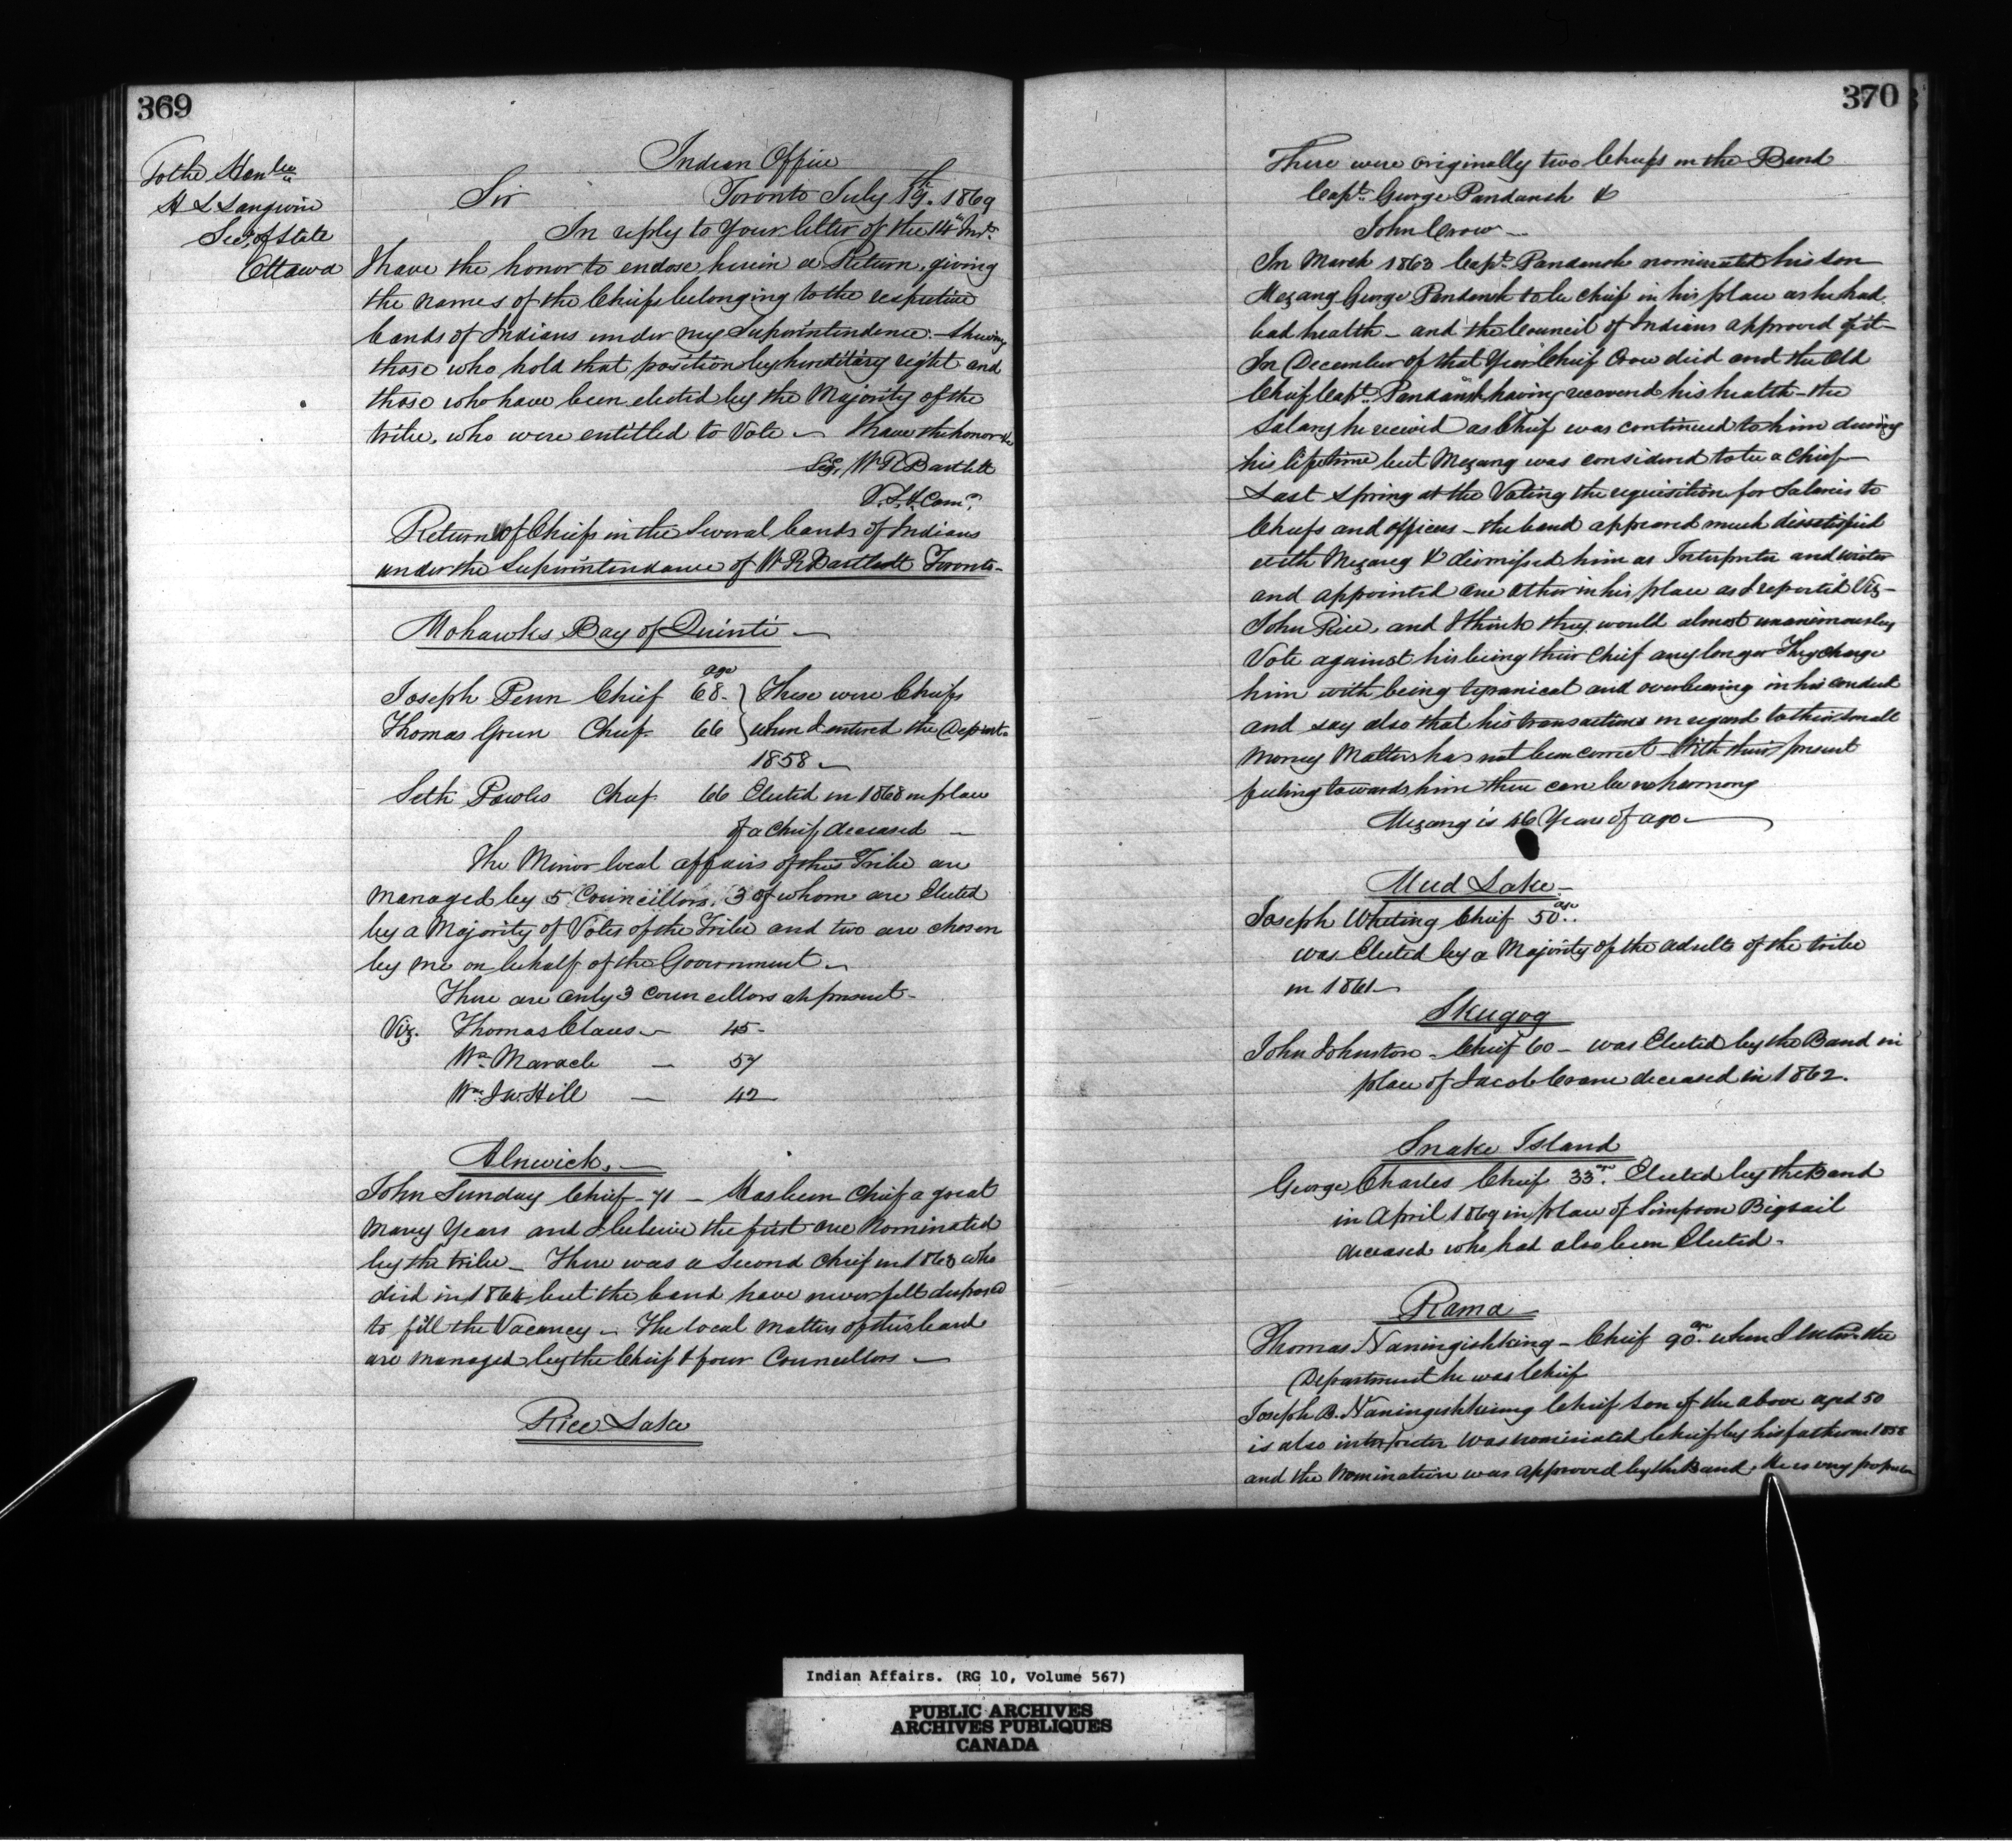 369
To the Honble
H L Langevin
Secy of State
Ottawa
Indian Office
Sir Toronto July 19th 1869
In reply to your letter of the 14th Inst.
I have the honor to enclose herein a Return, giving
the names of the Chiefs belonging to the respective
bands of Indians under my Superintendence. shewing
those who hold that position by hereditary right and
those who have been elected by the Majority of the
tribe, who were entitled to Vote — I have the honor &c
Sig, Wm R Bartlett
V. S. & Comr
Return of Chiefs in the Several bands of Indians
under the Superintendance of W R Bartlett Toronto -
Mohawks Bay of Quinti —
age
Joseph Penn Chief 68. } These were Chiefs
Thomas Green Chief 66 } when I entered the Departmt.
1858 —
Seth Powles Chief 66 Elected in 1868 in place
of a Chief deceased —
The Minor local affairs of this Tribe are
managed by 5 Councillors, 3 of whom are Elected
by a Majority of Votes of the Tribe and two are chosen
by me on behalf of the Government —
There are only 3 councillors at present -
Viz. Thomas Claus — 45 -
Wm Maracle — 57
Wm J W Hill — 42
Alnwick. —
John Sunday Chief - 71 - Has been Chief a great
many Years and I believe the first one Nominated
by the tribe — There was a Second Chief in 1863 who
died in 1864 but the band have never felt disposed
to fill the Vacancy — The local matters of this band
are managed by the Chief & four Councillors —
Rice Lake
370
There were originally two Chiefs in the Band
Capt. George Pandaush &
John Crow —
In March 1863 Capt. Pandaush nominated his son
Mezang George Pandaush to be Chief in his place as he had
bad health — and the Council of Indians approved of it —
In December of that Year Chief Crow died and the Old
Chief Capt. Pandaush having recovered his health — the
Salary he received as Chief was continued to him during
his lifetime but Mezang was considered to be a Chief —
Last spring at the Voting the requisition for Salaries to
Chiefs and officers — the band appeared much dissatisfied
with Mezang & dismissed him as Interpreter and writer
and appointed one other in his place as I reported Viz —
John Rice, and I think they would almost unanimously
Vote against his being their Chief any longer They charge
him with being tyranical and overbearing in his conduct
and say also that his transactions in regard to their small
money Matters has not been correct — With their present
feeling towards him there can be no harmony
Mezang is 46 Years of age —
Mud Lake —
Joseph Whiting Chief 50 age
was Elected by a Majority of the adults of the tribe
in 1861 —
Skugog
John Johnston - Chief 60 - was Elected by the Band in
place of Jacob Crane deceased in 1862.
Snake Island
George Charles Chief 33 age. Elected by the Band
in April 1869 in place of Simpson Bigsail
deceased who had also been Elected -
Rama
Thomas Naningishking - Chief 90 age. when I the
Department he was Chief
Joseph B. Naningishkung Chief son of the above aged 50
is also interpreter was nominated Chief by his father in 1858
and the Nomination was approved by the Band. He is very popular
Indian Affairs. (RG 10, Volume 567)
PUBLIC ARCHIVES
ARCHIVES PUBLIQUES
CANADA